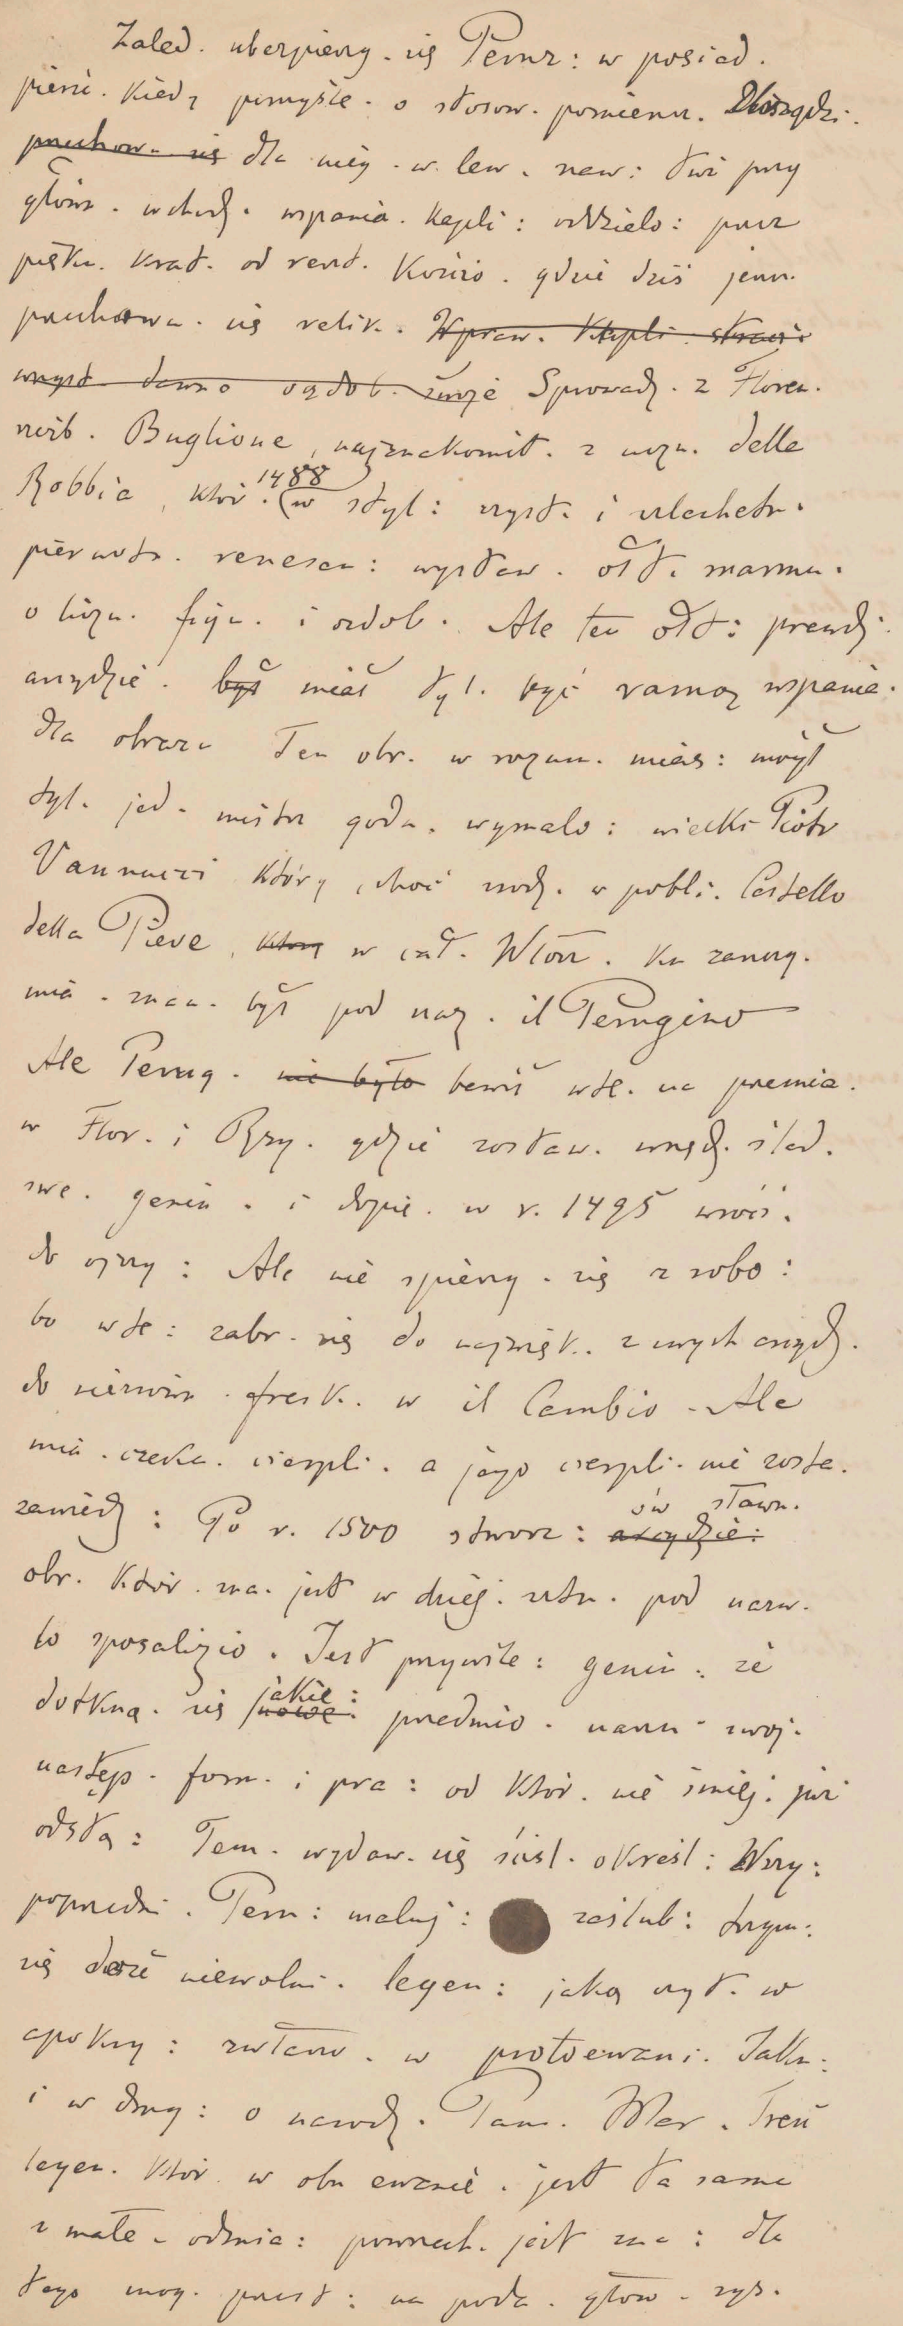 Zaled. ubezpieczy. się Peruz: w posiad.
pierśc. Kiedy pomyśle. o stosow. pomieszcz. Urządzi.
przechow. się dla niej. w lew. naw: tuż przy
główn. wchodz. wspania. Kapli: oddzielo: przez
piękn. Krat. od reszt. Kościo. gdzie dziś jeszcz.
przechowu. się relik. Wpraw. Kapli. straci.
wszyst. dawno ozdob. swoje Sprowadz. z Floren.
rzeźb. Buglione, najznakomit. z ucz. della
Robbia, któr. 1488 w styl: czyst. i szlachetn.
pierwotn. renesan: wystaw. ołt. marmu.
o liczn. figu. i ozdob. Ale ten ołt: prawdz.
arcydzie. być miał tyl. być ramą wspania.
dla obrazu Ten obr. w rozum. mias: mógł
tyl. jed. mistrz godn. wymalo: wielki Piotr
Vannucci który, choć rodz. w pobli. Castello
della Pieve, który w cał. Włosz. ku zaszcz.
mia. znan. był pod naz. il Perugino
Ale Perug. nie było bawił wte. na przemia.
w Flor. i Rzy. gdzie zostaw. wszędz. ślad.
swe. geniu. i dopie. w r. 1495 wróci.
do ojczy: Ale nie spieszy. się z robo:
bo wte: zabr. się do najwięk. z swych arcydz.
do fresk. w il Cambio. Ale
mia. czeka. cierpli. a jego cierpli. nie zosta.
zawiedz: Po r. 1500 stworz: arcydzie: ów sławn.
obr. któr. zna. jest w dziej. sztu. pod nazw.
lo sposalizio. Jest przywile: geniu: że
dotkną. się nowe. jakie: przedmio. narzu. swoj.
następ. form. i pra: od któr. nie śmiej. już
odstą: Tem. wydaw. się ściśl. określ: Wszy:
poprzedni. Peru: maluj: zaślub: trzym:
się dość niewolni. legen: jaką czyt. w
apokry: zwłaszcz. w protoewani. Jakó:
i w drug: o narodz. Pan. Mar. Treść
legen. któr. w obu ewanie. jest ta sama
z małe. odmia: powszech. jest zna: dla
tego mog. przest: na poda. głów. rys.